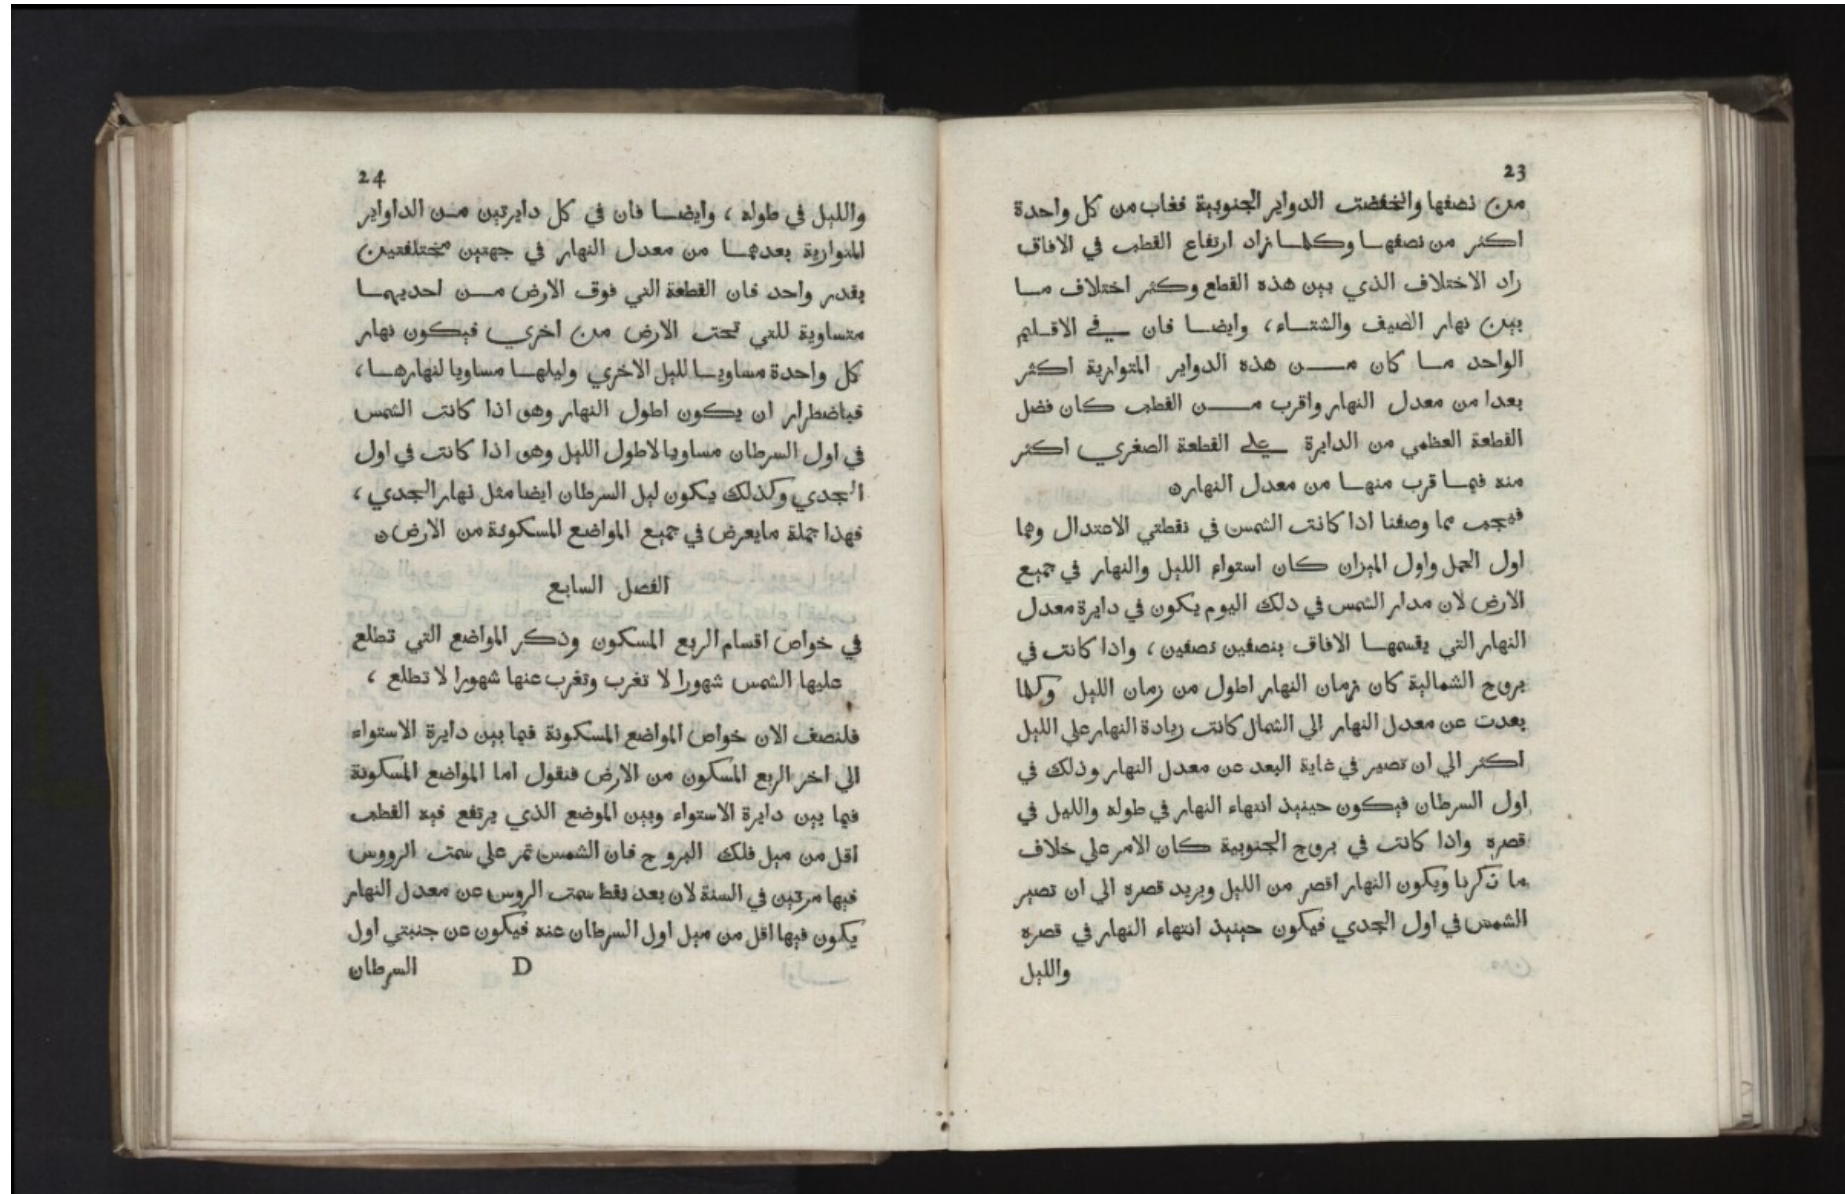 23
من نصفها وانخفضت الدواير الجنوبية فغاب من كل واحدة
اكثر من نصفها وكلما زاد ارتفاع القطب في الافاق
راد الاختلاف الذي بين هذه القطع وكثر اختلاف ما
بين نهار الصيف والشتاء، وايضا فان في الاقليم
الواحد ما كان من هذه الدواير المتوازية اكثر
بعدا من معدل النهار واقرب من القطب كان فضل
القطعة العظمي من الدايرة علي القطعة الصغري اكثر
منه فيما قرب منها من معدل النهار ه
فيجب مما وصفنا اذا كانت الشمس في نقطتي الاعتدال وهما
اول الحمل واول الميزان كان استواء الليل والنهار في جميع
الارض لان مدار الشمس في دلك اليوم يكون في دايرة معدل
النهار التي يقسمها الافاق بنصفين نصفين، واذا كانت في
بروج الشمالية كان زمان النهار اطول من زمان الليل وكلما
بعدت عن معدل النهار الي الشمال كانت زيادة النهار علي الليل
اكثر الي ان تصير في غاية البعد عن معدل النهار وذلك في
اول السرطان فيكون حينيذ انتهاء النهار في طوله والليل في
قصره واذا كانت في بروج الجنوبية كان الامر علي خلاف
ما ذكرنا ويكون النهار اقصر من الليل ويريد قصره الي ان تصير
الشمس في اول الجدي فيكون حينيذ انتهاء النهار في قصره
والليل
24
والليل في طوله، وايضا فان في كل دايرتين من الداواير
المتوازية بعدهما من معدل النهار في جهتين مختلفتين
بقدر واحد فان القطعة التي فوق الارض من احديهما
متساوية للتي تحت الارض من اخري فيكون نهار
كل واحدة مساويا لليل الاخري وليلها مساويا لنهارها،
فباضطرار ان يكون اطول النهار وهو اذا كانت الشمس
في اول السرطان مساويا لاطول الليل وهو اذا كانت في اول
الجدي وكذلك يكون ليل السرطان ايضا مثل نهار الجدي،
فهذا جملة ما يعرض في جميع المواضع المسكونة من الارض ه
الفصل السابع
في خواص اقسام الربع المسكون وذكر المواضع التي تطلع
عليها الشمس شهورا لا تغرب وتغرب عنها شهورا لا تطلع،
فلنصف الان خواص المواضع المسكونة فيما بين دايرة الاستواء
الي اخر الربع المسكون من الارض فنقول اما المواضع المسكونة
فيما بين دايرة الاستواء وبين الموضع الذي يرتفع فيه القطب
اقل من ميل فلك البروج فان الشمس تمر علي سمت الرووس
فيها مرتين في السنة لان بعد نقط سمت الروس عن معدل النهار
يكون فيها اقل من ميل اول السرطان عنه فيكون عن جنبتي اول
D السرطان